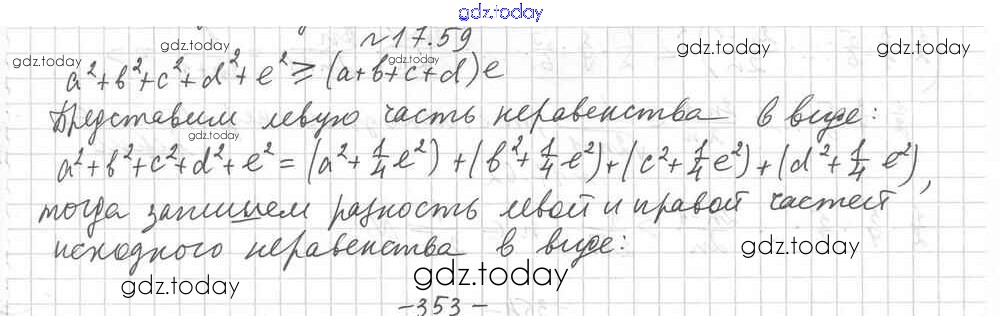 gdz.today
№17.59
gdz.today gdz.today gdz.today gdz.today
a²+b²+c²+d²+e²≥(a+b+c+d)e
Представим левую часть неравенства в виде:
gdz.today
a²+b²+c²+d²+e²=(a²+1/4e²)+(b²+1/4e²)+(c²+1/4e²)+(d²+1/4e²),
тогда запишем разность левой и правой частей
исходного неравенства в виде:
gdz.today
gdz.today gdz.today
-353-